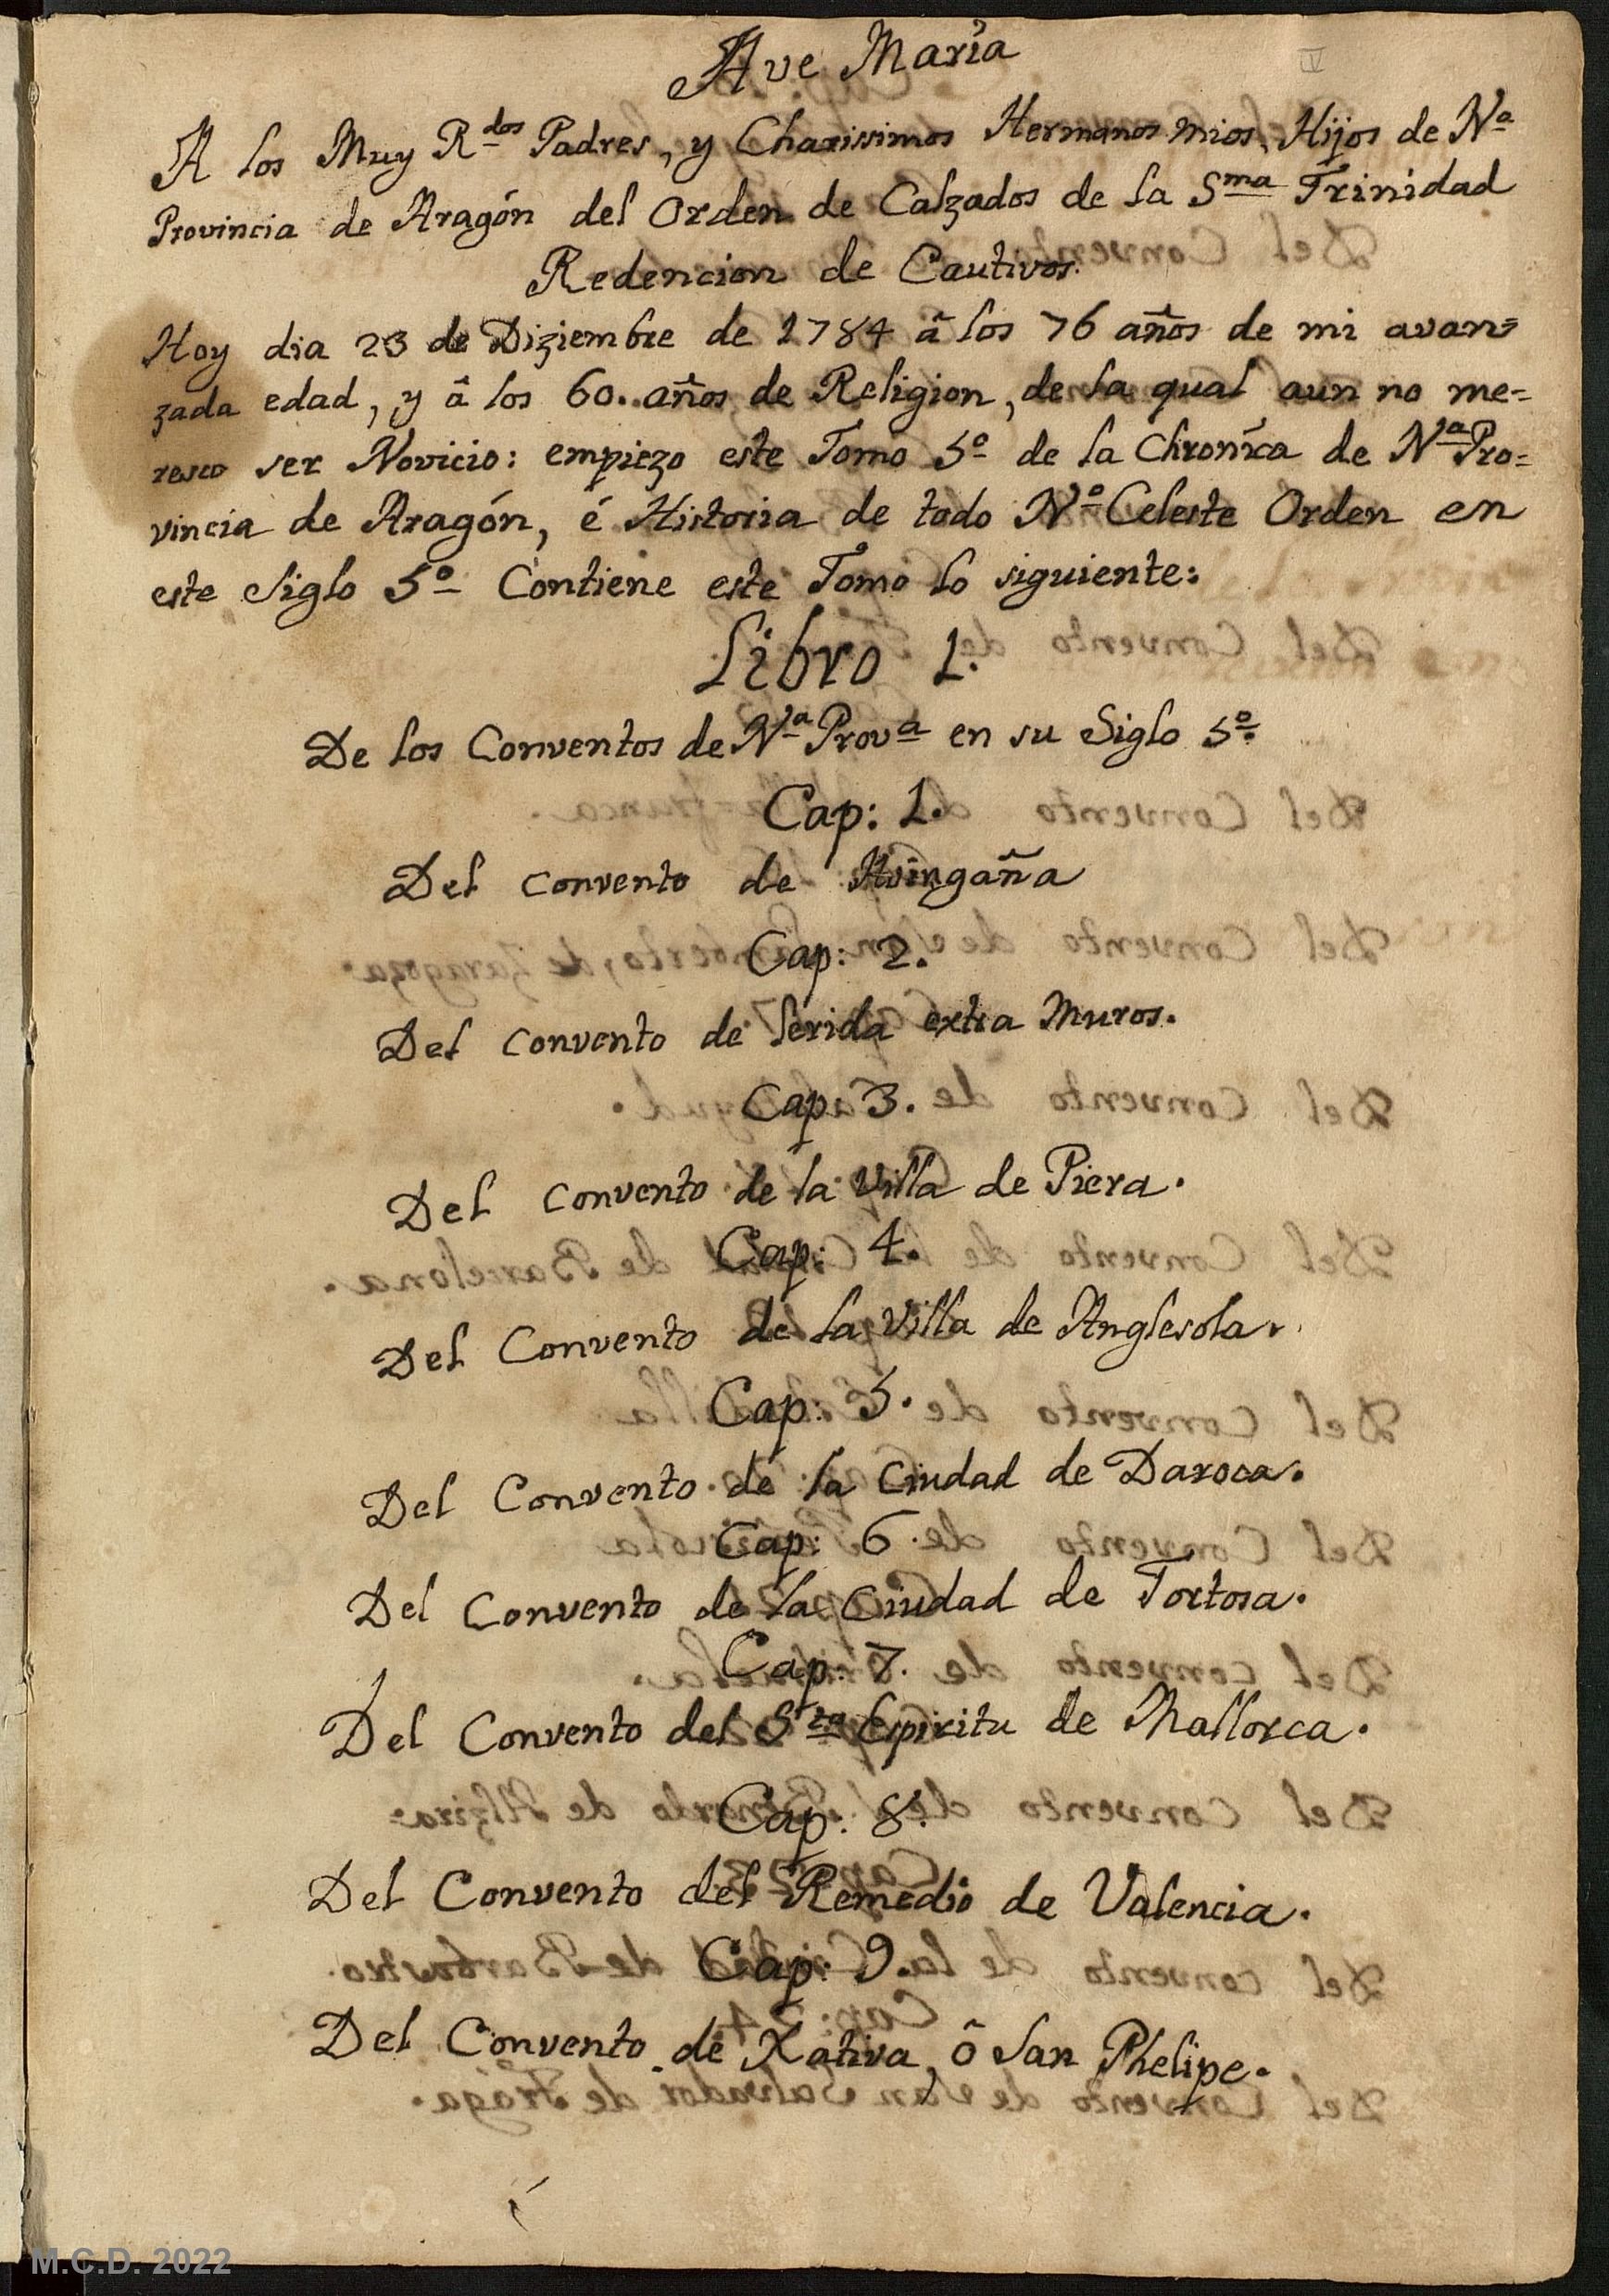 IV
Ave María
A los Muy R.dos Padres, y Charissimos Hermanos mios, Hijos de N.a
Provincia de Aragón del Orden de Calzados de la S.ma Trinidad
Redencion de Cautivos.
Hoy dia 23 de Diziembre de 1784 â los 76 años de mi avan=
zada edad, y â los 60. años de Religion, de la qual aun no me=
resco ser Novicio: empiezo este Tomo 5º de la Chronica de N.a Pro=
vincia de Aragón, é Historia de todo N.o Celeste Orden en
este Siglo 5º Contiene este Tomo lo siguiente:
Libro 1.
De los Conventos de N.a Prov.a en su Siglo 5º.
Cap: 1.
Del convento de Avingaña
Cap: 2.
Del convento de Lerida extra Muros.
Cap: 3.
Del convento de la Villa de Piera.
Cap: 4.
Del Convento de la Villa de Anglesola.
Cap: 5.
Del Convento de la Ciudad de Daroca.
Cap: 6.
Del Convento de la Ciudad de Tortosa.
Cap: 7.
Del Convento del Espiritu de Mallorca.
Cap: 8.
Del Convento del Remedio de Valencia.
Cap: 9.
Del Convento de Xativa, ô San Phelipe.
M.C.D. 2022